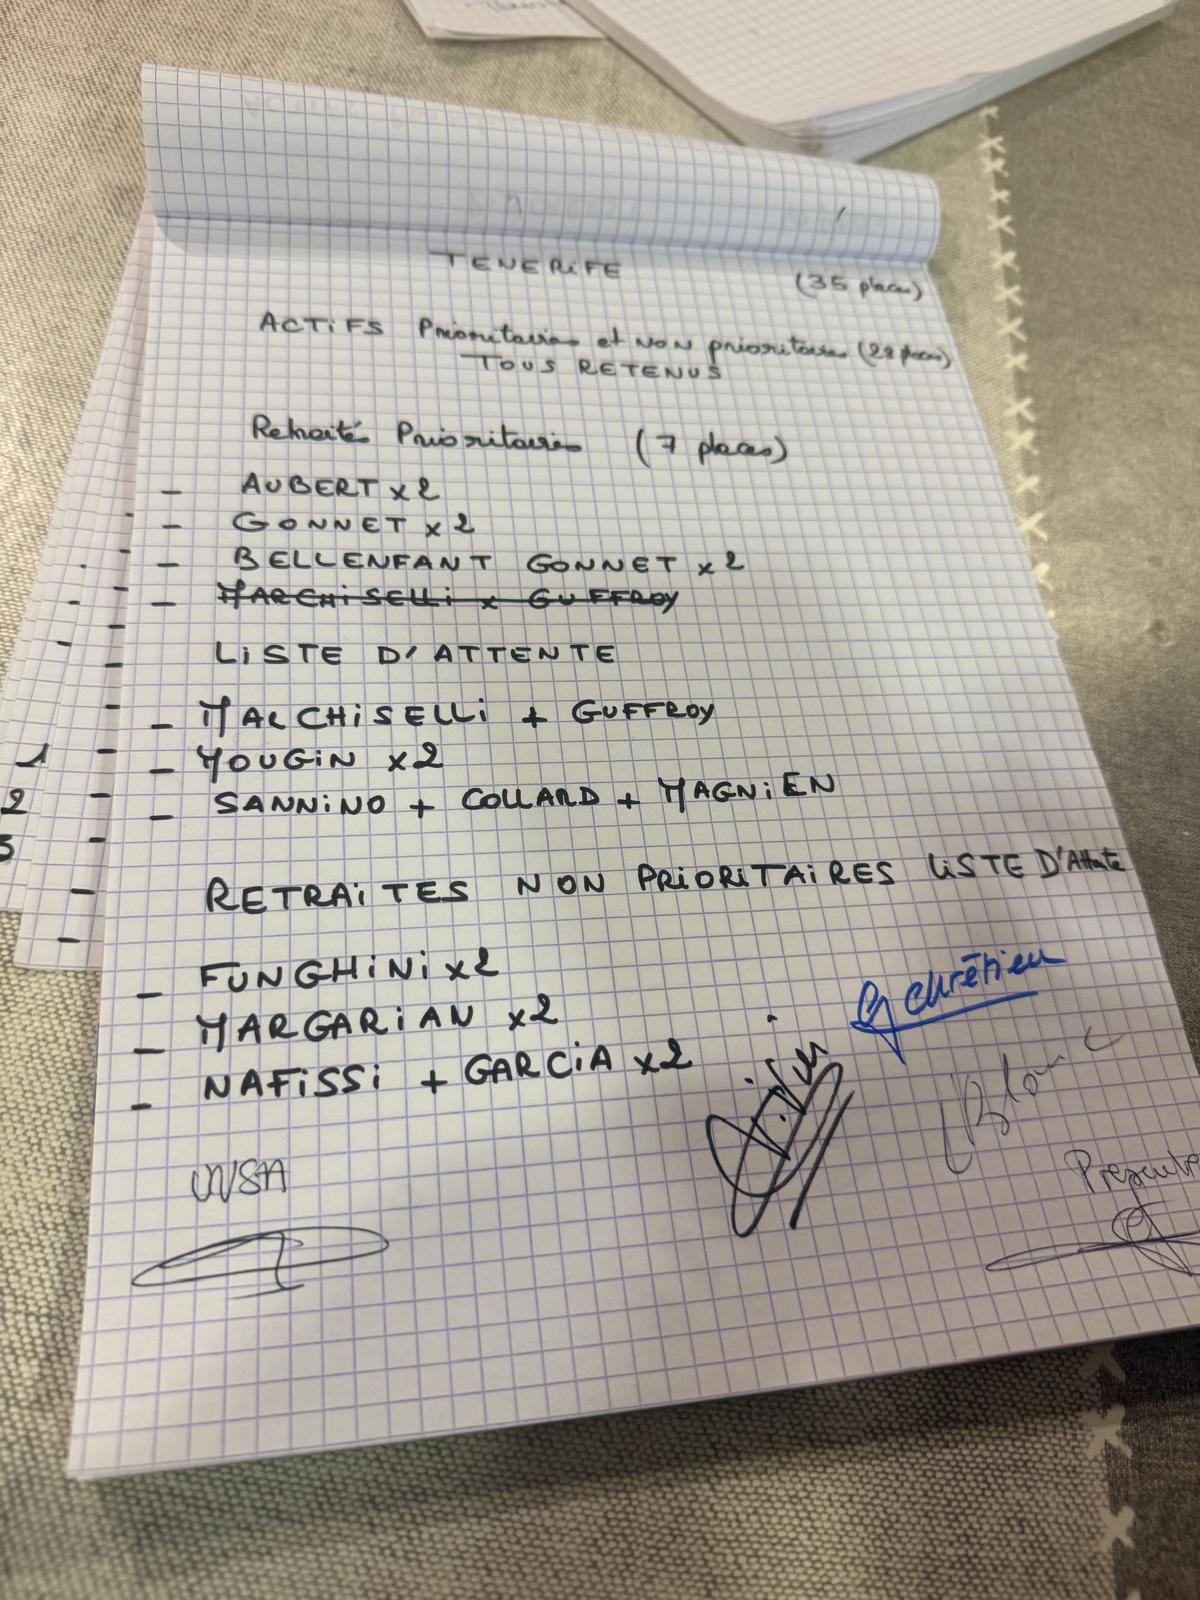 TENERIFE
(35 places)
ACTIFS Prioritaires et NON prioritaires (28 places)
TOUS RETENUS
Retraités Prioritaires (7 places)
- AUBERT x2
- GONNET x2
- BELLENFANT GONNET x2
- MARCHISELLI x GUFFROY
LISTE D'ATTENTE
- MALCHISELLI + GUFFROY
1
- MOUGIN x2
2
- SANNINO + COLLARD + MAGNIEN
RETRAITES NON PRIORITAIRES LISTE D'Attente
- FUNGHINI x2
- MARGARIAN x2
- NAFISSI + GARCIA x2
chrétien
Blanc